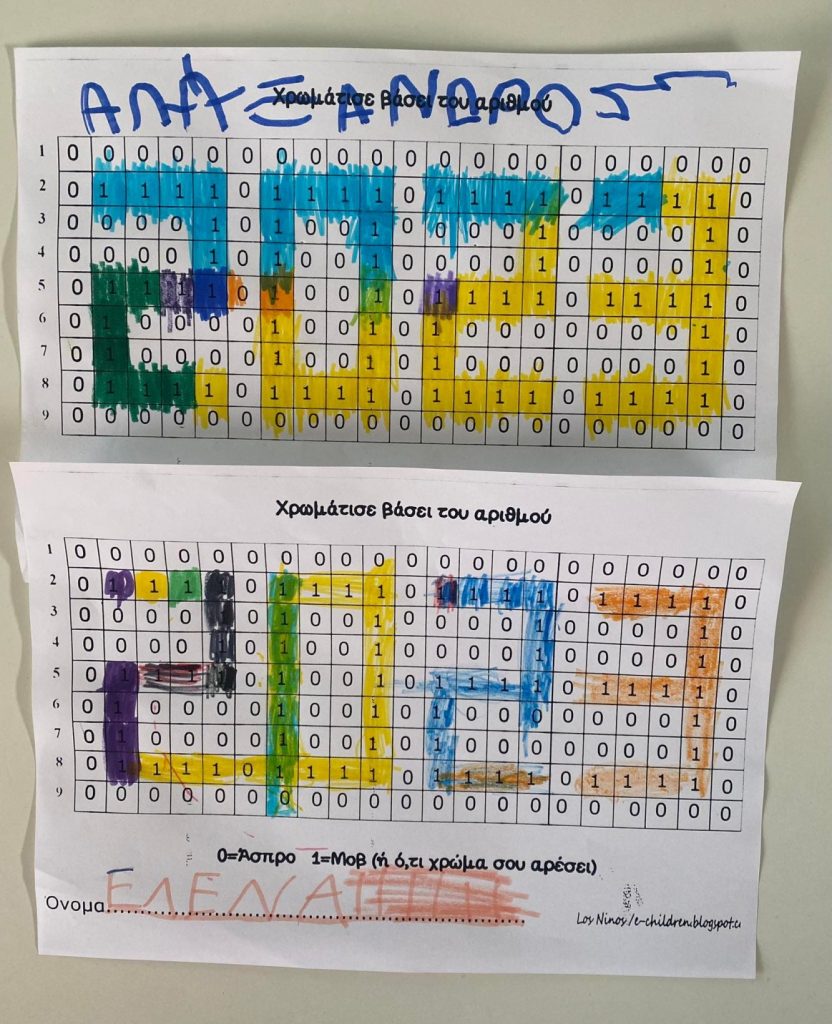 ΑΛΕΞΑΝΔΡΟΣ
Χρωμάτισε βάσει του αριθμού
1 0 0 0 0 0 0 0 0 0 0 0 0 0 0 0 0 0 0 0 0 0
2 0 1 1 1 1 0 1 1 1 1 0 1 1 1 1 0 1 1 1 1 0
3 0 0 0 0 1 0 1 0 0 1 0 0 0 0 1 0 0 0 0 1 0
4 0 0 0 0 1 0 1 0 0 1 0 0 0 0 1 0 0 0 0 1 0
5 0 1 1 1 1 0 1 0 0 1 0 1 1 1 1 0 1 1 1 1 0
6 0 1 0 0 0 0 1 0 0 1 0 1 0 0 0 0 0 0 0 1 0
7 0 1 0 0 0 0 1 0 0 1 0 1 0 0 0 0 0 0 0 1 0
8 0 1 1 1 1 0 1 1 1 1 0 1 1 1 1 0 1 1 1 1 0
9 0 0 0 0 0 0 0 0 0 0 0 0 0 0 0 0 0 0 0 0 0
Χρωμάτισε βάσει του αριθμού
1 0 0 0 0 0 0 0 0 0 0 0 0 0 0 0 0 0 0 0 0 0
2 0 1 1 1 1 0 1 1 1 1 0 1 1 1 1 0 1 1 1 1 0
3 0 0 0 0 1 0 1 0 0 1 0 0 0 0 1 0 0 0 0 1 0
4 0 0 0 0 1 0 1 0 0 1 0 0 0 0 1 0 0 0 0 1 0
5 0 1 1 1 1 0 1 0 0 1 0 1 1 1 1 0 1 1 1 1 0
6 0 1 0 0 0 0 1 0 0 1 0 1 0 0 0 0 0 0 0 1 0
7 0 1 0 0 0 0 1 0 0 1 0 1 0 0 0 0 0 0 0 1 0
8 0 1 1 1 1 0 1 1 1 1 0 1 1 1 1 0 1 1 1 1 0
9 0 0 0 0 0 0 0 0 0 0 0 0 0 0 0 0 0 0 0 0 0
0=Άσπρο 1=Μοβ (ή ό,τι χρώμα σου αρέσει)
Όνομα ΕΛΕΝΑ
Los Ninos/e-children.blogspot.c